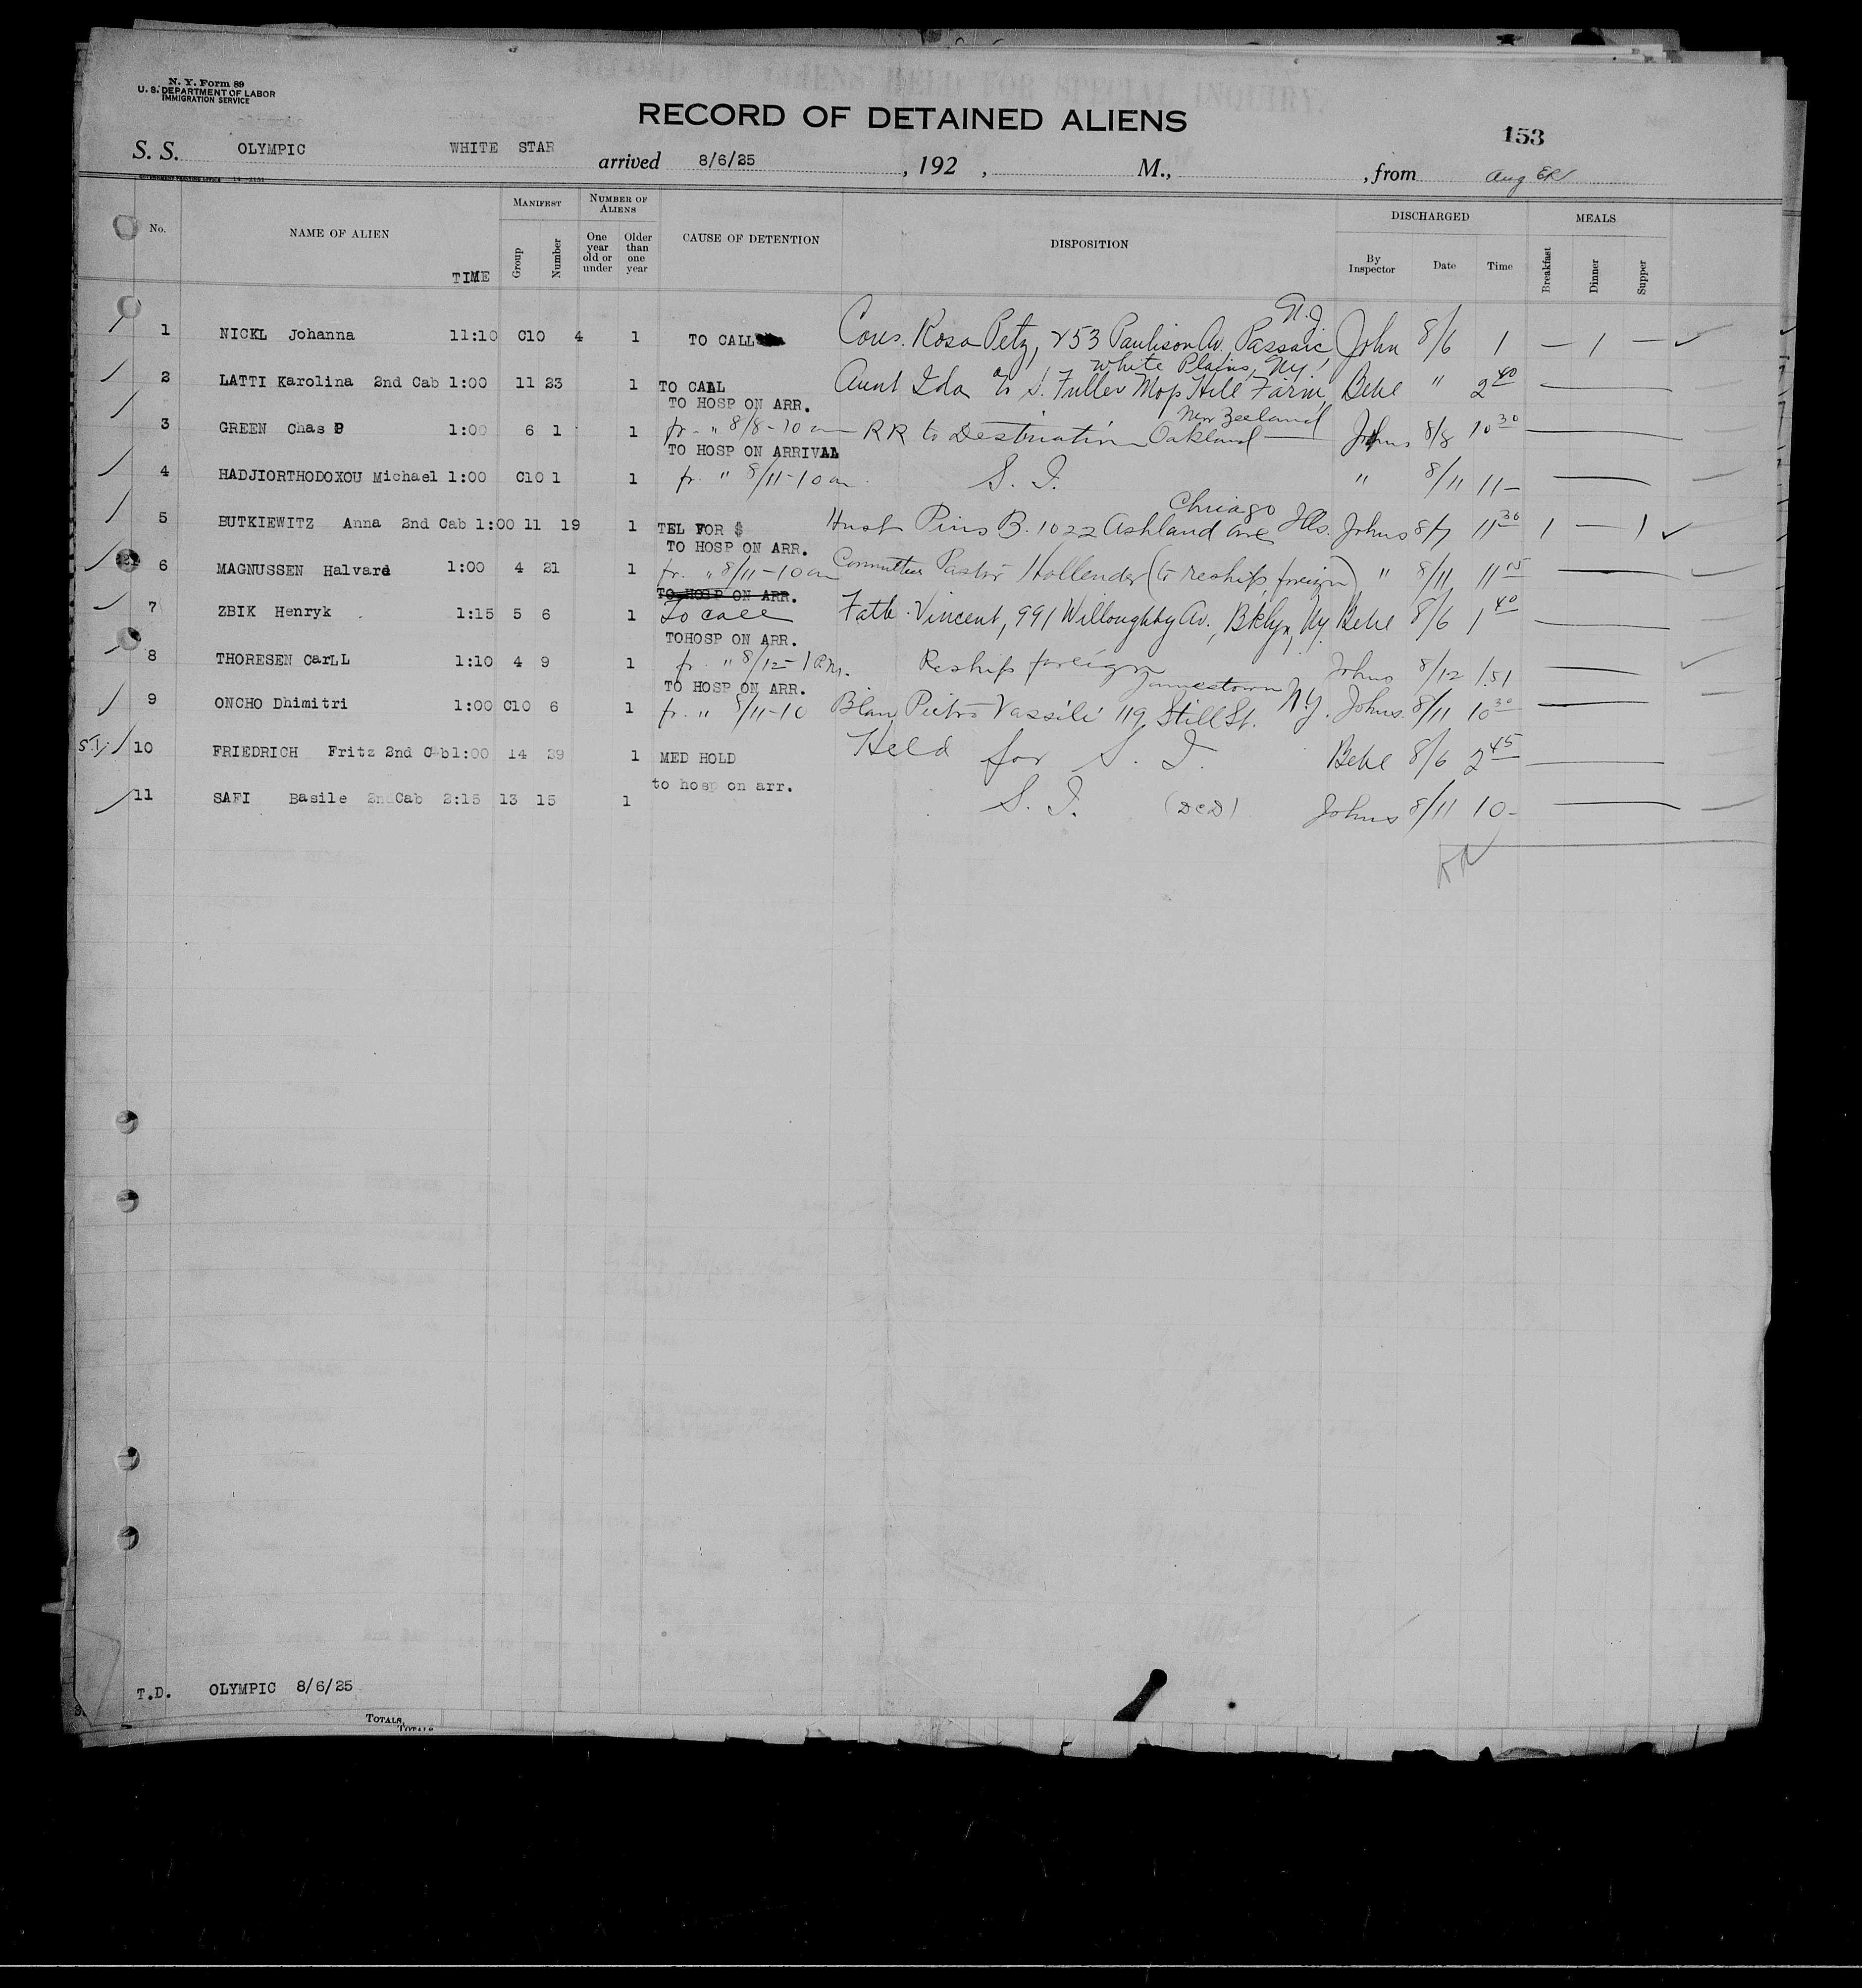 N. Y. Form 89
U. S. DEPARTMENT OF LABOR
IMMIGRATION SERVICE
RECORD OF DETAINED ALIENS
153
S. S. OLYMPIC WHITE STAR arrived 8/6/25 , 192 , M., , from Aug
No. NAME OF ALIEN TIME MANIFEST Group Number NUMBER OF ALIENS One year old or under Older than one year CAUSE OF DETENTION DISPOSITION DISCHARGED By Inspector Date Time MEALS Breakfast Dinner Supper
N.J.
1 NICKL Johanna 11:10 C10 4 1 TO CALL Cous. Rosa Petz, 253 Paulison Av. Passaic John 8/6 1 — 1 —
White Plains, Ny.
2 LATTI Karolina 2nd Cab 1:00 11 23 1 TO CALL Aunt Ida % S. Fuller Mop Hill Farm, Behl " 2 40
TO HOSP ON ARR. New Zeeland
3 GREEN Chas P 1:00 6 1 1 fr. " 8/8-10 am RR to Destination Oakland Johns 8/8 10 30
TO HOSP ON ARRIVAL
4 HADJIORTHODOXOU Michael 1:00 C10 1 1 fr. " 8/11-10 am S. I. " 8/11 11-
Chicago
5 BUTKIEWITZ Anna 2nd Cab 1:00 11 19 1 TEL FOR $ Husb Pius B. 1022 Ashland ave Ills. Johns 8/7 11 30 1 — 1
TO HOSP ON ARR.
6 MAGNUSSEN Halvard 1:00 4 21 1 fr. " 8/11-10 am Committee Pastor Hollender (to reship foreign) " 8/11 11 15
TO HOSP ON ARR.
7 ZBIK Henryk 1:15 5 6 1 To call Fath. Vincent, 991 Willoughby Av., Bklyn, Ny. Behl 8/6 1 40
TOHOSP ON ARR.
8 THORESEN CarLL 1:10 4 9 1 fr. " 8/12-1 P.M. Reship foreign Johns 8/12 1.51
TO HOSP ON ARR. Jamestown
9 ONCHO Dhimitri 1:00 C10 6 1 fr. " 8/11-10 Pietro Vassili 119 Still St. N.Y. Johns 8/11 10 30
S.I. 10 FRIEDRICH Fritz 2nd Cab1:00 14 29 1 MED HOLD Held for S. I. Behl 8/6 2 45
to hosp on arr.
11 SAFI Basile 2ndCab 2:15 13 15 1 S. I. (DCD) Johns 8/11 10-
T.D. OLYMPIC 8/6/25
TOTALS,